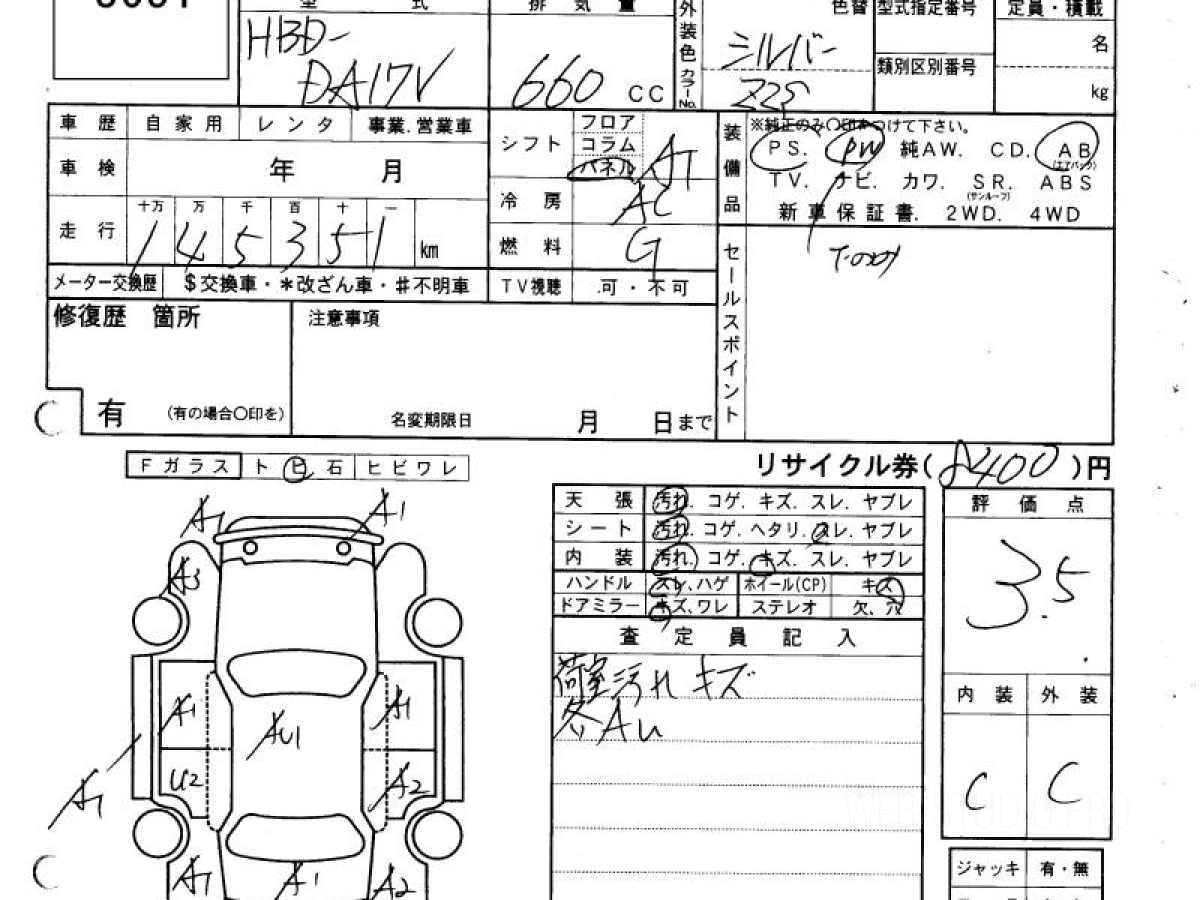 型 式
排 気 量
外装色
色替
型式指定番号
定員・積載
HBD-
DA17V
660 CC
カラーNo.
シルバー
ZZS
名
類別区別番号
kg
車 歴 自 家 用 レ ン タ 事業.営業車
シフト フロア
コラム
パネル
AT
装備品
※純正のみ○印をつけて下さい。
PS. PW 純AW. CD. AB
(エアバッグ)
TV. ナビ. カワ. SR. ABS
(サンルーフ)
新車保証書. 2WD. 4WD
車 検 年 月
冷 房 AC
走 行 十万 万 千 百 十 一
1 4 5 3 5 1 km
燃 料 G
セールスポイント
メーター交換歴 $交換車・*改ざん車・♯不明車
TV視聴 .可・不可
修復歴 箇所
注意事項
有 (有の場合○印を)
名変期限日 月 日まで
リサイクル券( 8400 )円
Fガラス ト ヒ 石 ヒビワレ
天 張 汚れ. コゲ. キズ. スレ. ヤブレ
シート 汚れ. コゲ. ヘタリ. スレ. ヤブレ
内 装 汚れ. コゲ. キズ. スレ. ヤブレ
ハンドル スレ、ハゲ ホイール(CP) キズ
ドアミラー キズ、ワレ ステレオ 欠、穴
評 価 点
3.5
査 定 員 記 入
荷室汚れ キズ
各AU
内 装 外 装
C C
A1 A1
A3
A1 AU1 A1
A1 U2 A2
A1 A1 A2
ジャッキ 有・無